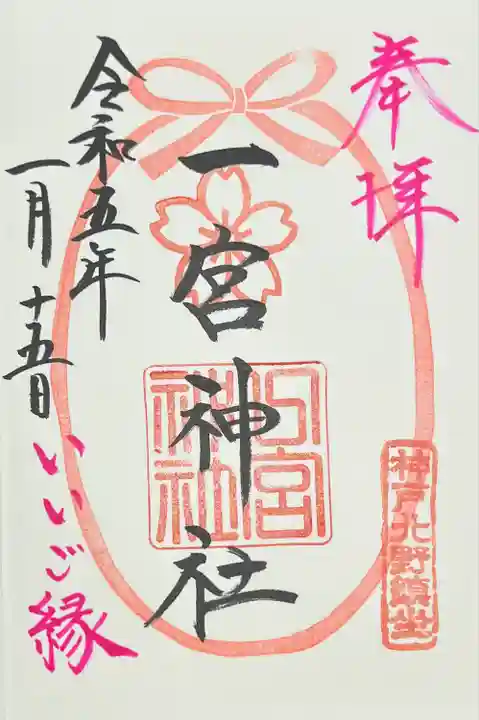 奉拝
一宮神社
一宮神社
神戸北野鎮坐
令和五年
一月十五日
いいご縁